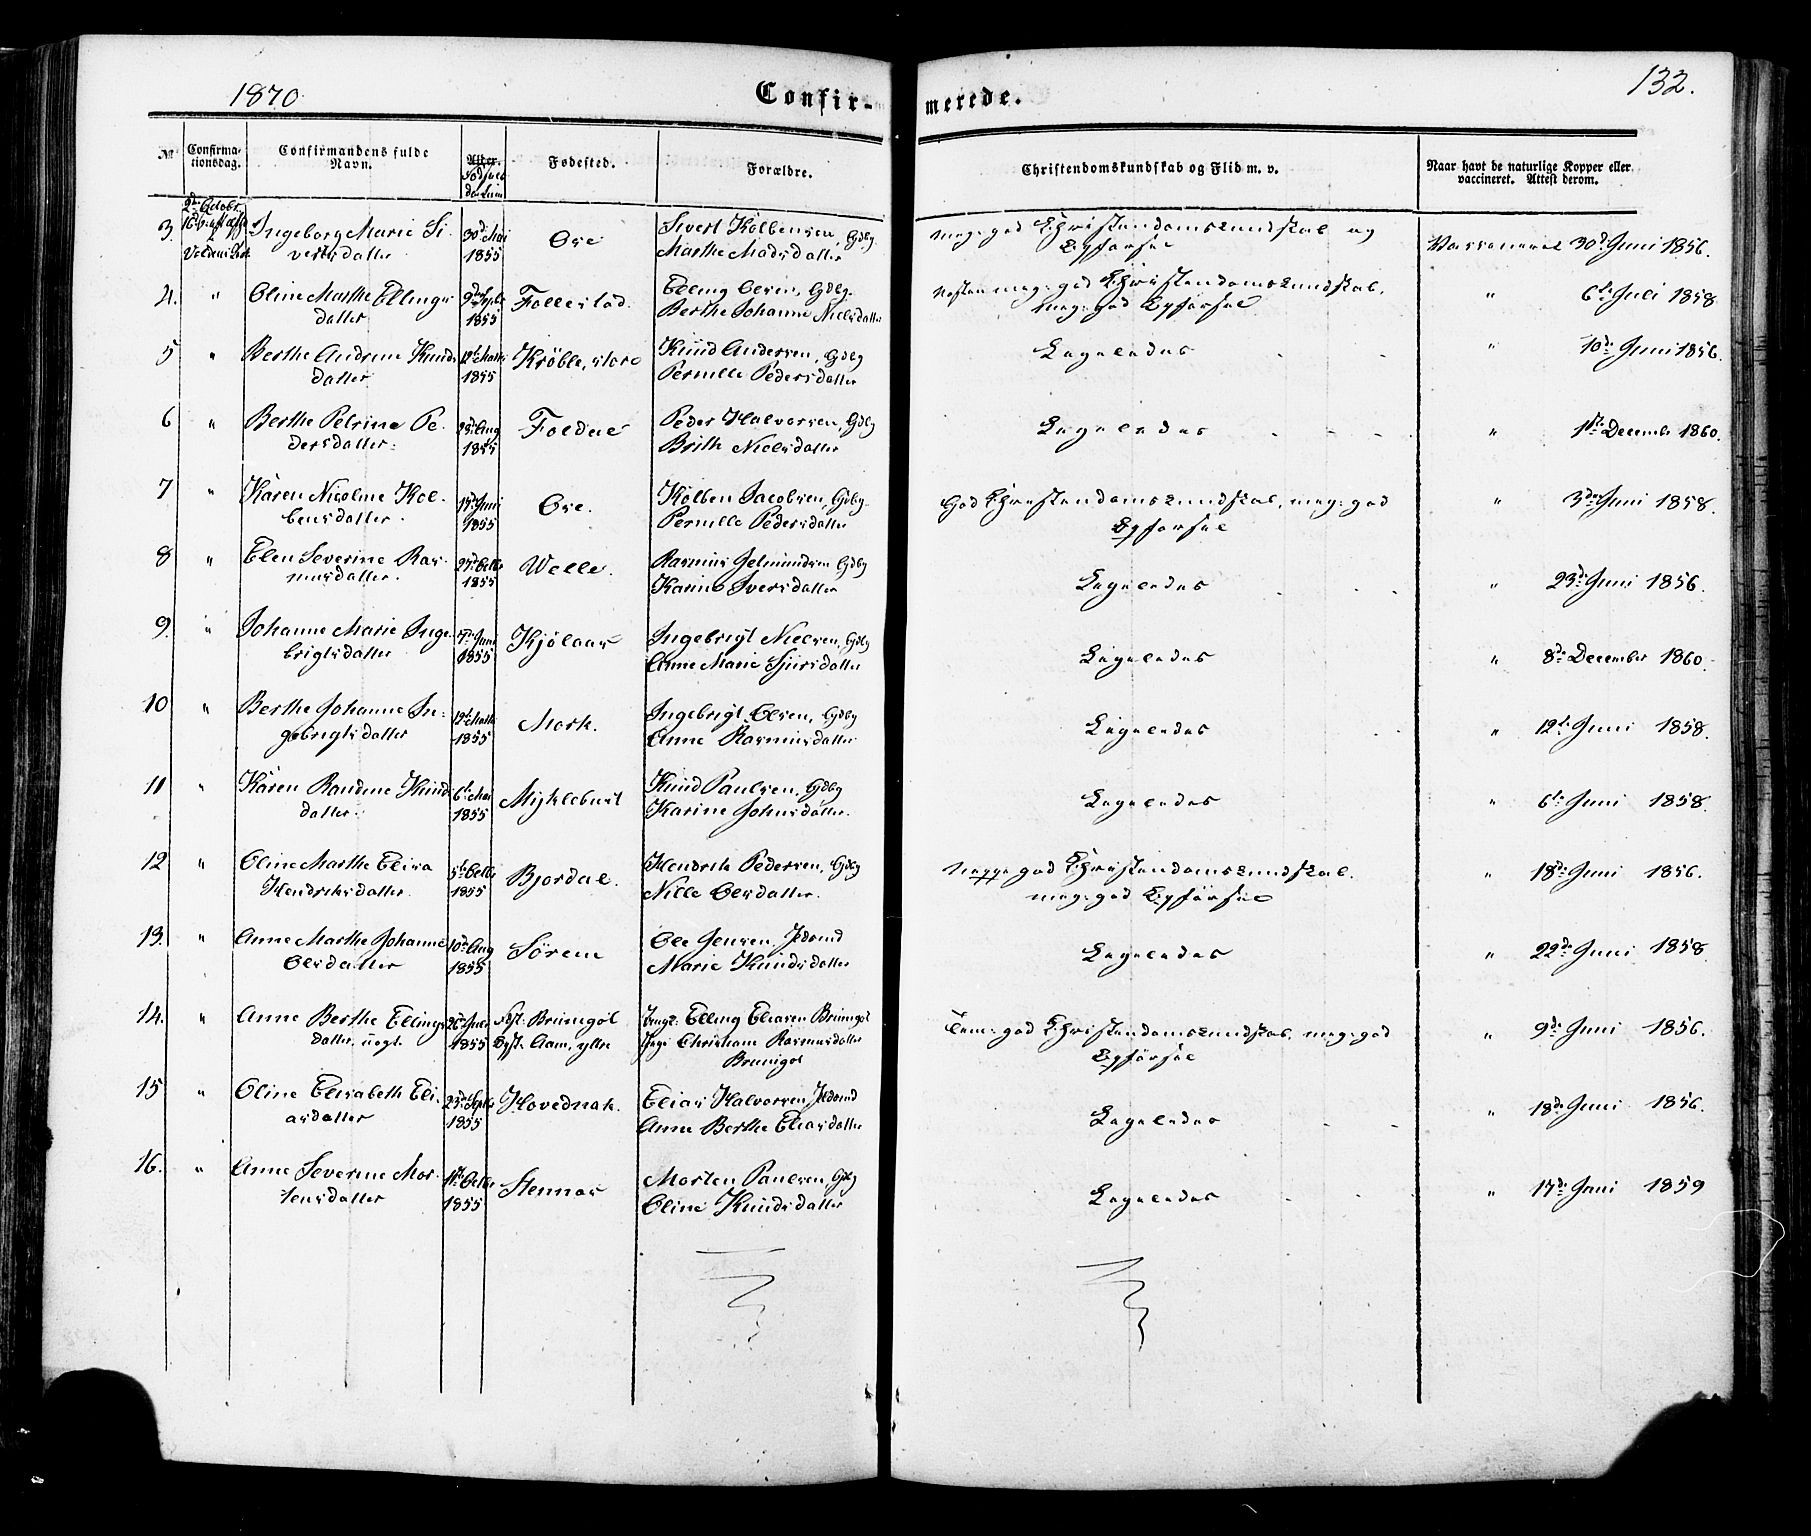 1870.
Confir-
merede.
132.
№
Confirma-
tionsdag.
Confirmandens fulde
Navn.
Alder.
Födsels
datum
Fødested.
Forældre.
Christendomskundskab og Flid m. v.
Naar havt de naturlige Kopper eller
vaccineret. Attest derom.
3. 2den Octobr Ingeborg Marie Si-
vertsdatter 30te Mai
1855 Øre Sivert Kolbensen, Gdbg.
Marthe Madsdatter meg: god Christendomskundskab og
Opførsel Vaccineret 30te Juni 1856.
4. " Oline Marthe Ellings
datter 9de Septb
1855 Follestad. Elling Olsen, Gdbg.
Berthe Johanne Nielsdatter næsten meg: god Christendomskundskab,
meg: god Opførsel " 6te Juli 1858
5 " Berthe Andrine Knuds
datter 12te Marts
1855 Krøvle, store Knud Andersen, Gdbg
Pernille Pedersdatter Ligeledes " 10de Juni 1856.
6 " Berthe Petrine Pe-
dersdatter. Aug
1855 Foldal Peder Halvorsen, Gdbg
Brith Nielsdatter Ligeledes " 1ste December 1860.
7 " Karen Nicoline Kol-
bensdatter. Juni
1855 Øre. Kolben Jacobsen, Gdbg.
Pernille Pedersdatter God Christendomskundskab, meg: god
Opførsel " 3die Juni 1858.
8 " Elen Severine Ras-
musdatter. Octbr
1855 Welle. Rasmus Jetmundsen Gdbg
Karine Iversdatter Ligeledes " 23de Juni 1856.
9. " Johanne Marie Inge-
brigtsdatter Juni
1855 Kjølaas Ingebrigt Nielsen, Gdbg
Anne Marie Sjursdatter Ligeledes " 8de December 1860.
10 " Berthe Johanne In-
gebrigtsdatter 12te Marts
1855 Mork. Ingebrigt Olsen, Gdbg
Anne Rasmusdatter Ligeledes " 12te Juni 1858.
11 " Karen Randine Knuds
datter. 6te Mai
1855 Myklebust Knud Paulsen, Gdbg
Karine Johnsdatter. Ligeledes " 6te Juni 1858.
12 " Oline Marthe Elisa
Hendriksdatter. 5te Octbr
1855 Bjørdal. Hendrik Pedersen, Gdbg
Nille Olsdatter. Megge god Christendomskundskab.
meg: god Opførsel " 18de Juni 1856.
13. " Anne Marthe Johanne
Olsdatter 10de Aug
1855 Sørem Ole Jensen, Huusmd
Marie Knudsdatter Ligeledes " 22de Juni 1858.
14. " Anne Berthe Ellings
datter, uægt. 26de Juni
1855 Fst: Brungot
Opst. Aam, ytre Elling Eliasen Brungot
Pige Christiane Rasmusdatter
Brungot Tem: god Christendomskundskab, meg: god
Opførsel " 9de Juni 1856.
15 " Oline Elisabeth Eli-
asdatter Septb
1855 Hovednak. Elias Halvorsen, Huusmd
Anne Berthe Eliasdatter Ligeledes " 18de Juni 1856.
16. " Anne Severine Mor-
tensdatter Octbr
1855 Stennes Morten Paulsen, Gdbg
Oline Knudsdatter Ligeledes " 17de Juni 1859